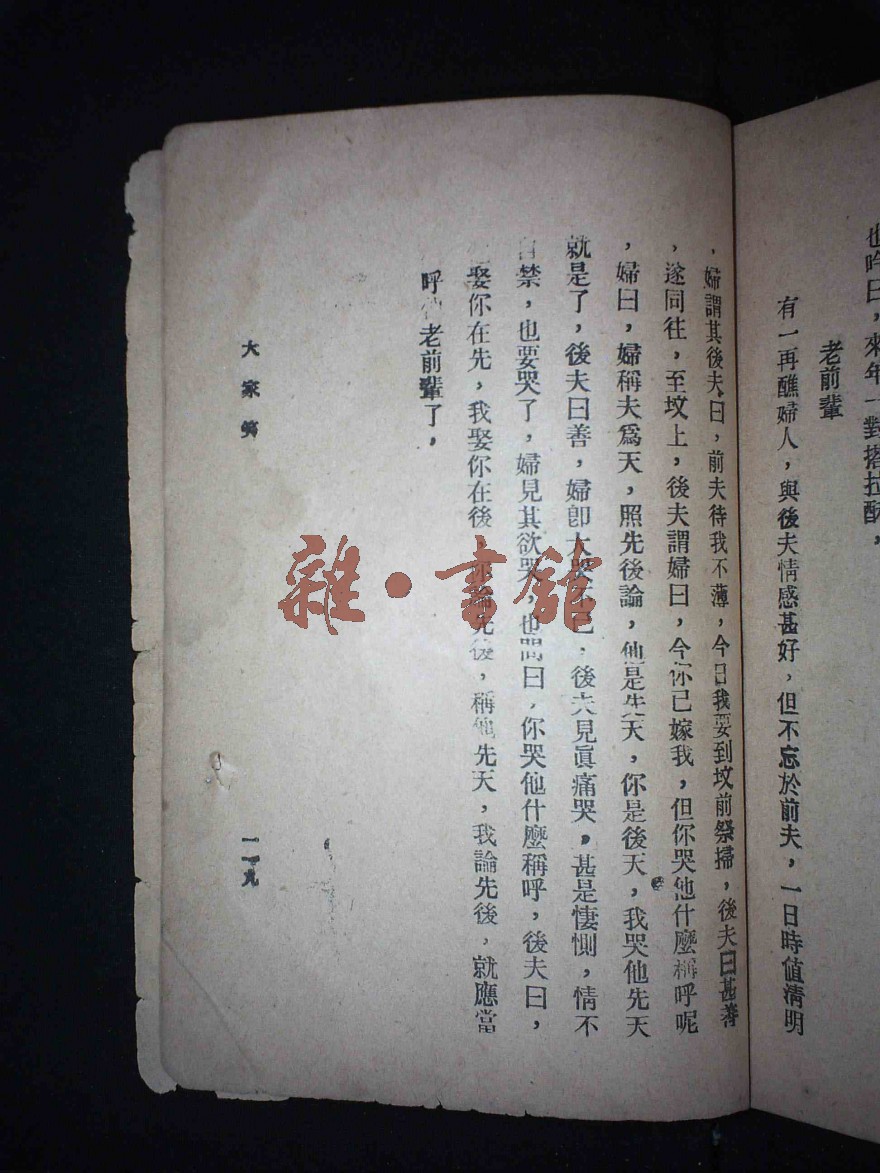 也吟曰，來年一對搭拉酥，
老前輩
有一再醮婦人，與後夫情感甚好，但不忘於前夫，一日時值清明
，婦謂其後夫曰，前夫待我不薄，今日我要到坟前祭掃，後夫曰甚善
，遂同往，至坟上，後夫謂婦曰，今你已嫁我，但你哭他什麼稱呼呢
，婦曰，婦稱夫爲天，照先後論，他是先天，你是後天，我哭他先天
就是了，後夫曰善，婦卽大哭不已，後夫見眞痛哭，甚是悽惻，情不
自禁，也要哭了，婦見其欲哭，也問曰，你哭他什麼稱呼，後夫曰，
娶你在先，我娶你在後，你論先後，稱他先天，我論先後，就應當
呼 老前輩了，
大家笑
一一九
雜·書館